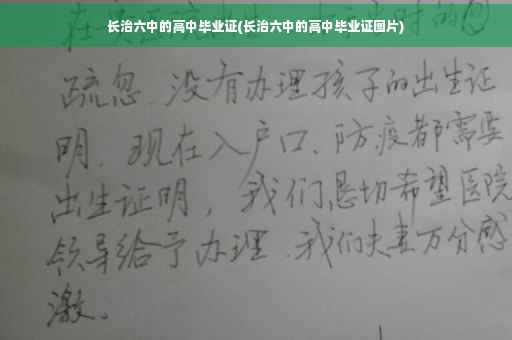 长治六中的高中毕业证(长治六中的高中毕业证图片)
疏忽、没有办理孩子的出生证
明、现在入户口、防疫都需要
出生证明，我们恳切希望医院
领导给予办理、我们夫妻万分感
激。